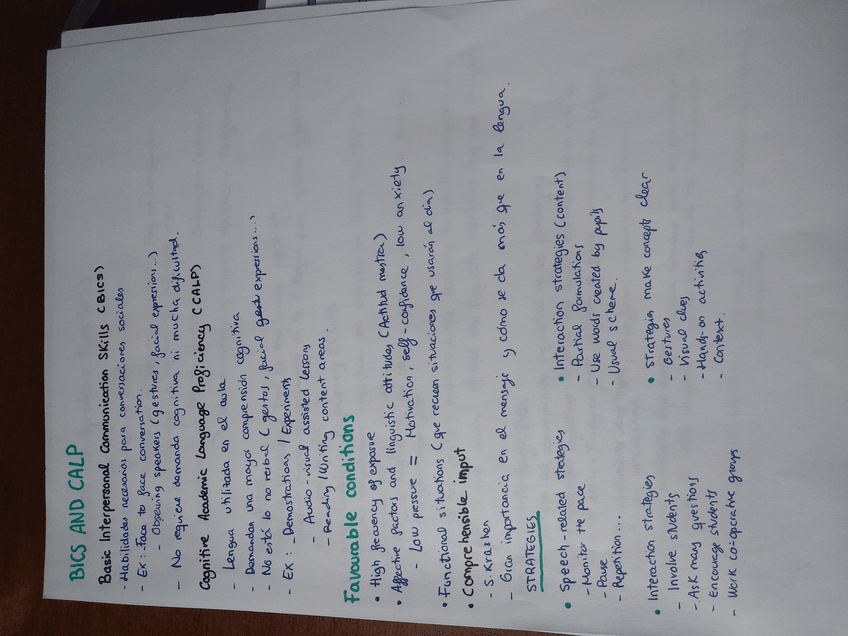 BICS AND CALP
Basic Interpersonal Communication Skills (BICS)
- Habilidades necesarias para conversaciones sociales
- Ex: - Face to face conversation.
- Observing speakers (gestures, facial expressions...)
- No requiere demanda cognitiva ni mucha dificultad.
Cognitive Academic Language Proficiency (CALP)
- Lengua utilizada en el aula
- Demandan una mayor comprensión cognitiva
- No está lo no verbal (gestos, facial expressions...)
- Ex: - Demostrations / Experiments
- Audio-visual assisted lessons
- Reading / Writing content areas.
Favourable conditions
• High frecuency of exposure
• Affective factors and linguistic attitudes (Actitud maestra)
- Low pressure = Motivation, self-confidence, low anxiety
• Functional situations (que recreen situaciones que usarán al día)
• Comprehensible imput
- S. Krashen
- Gran importancia en el mensaje y cómo se da más que en la lengua.
STRATEGIES
• Speech-related strategies
- Monitor the pace
- Pause
- Repetition...
• Interaction strategies (content)
- Partial formulations
- Use words created by pupils
- Visual scheme.
• Interaction strategies
- Involve students
- Ask many questions
- Encourage students
- Work co-operative groups
• Strategies make concepts clear
- Gestures
- Visual clues
- Hands-on activities
- Context.